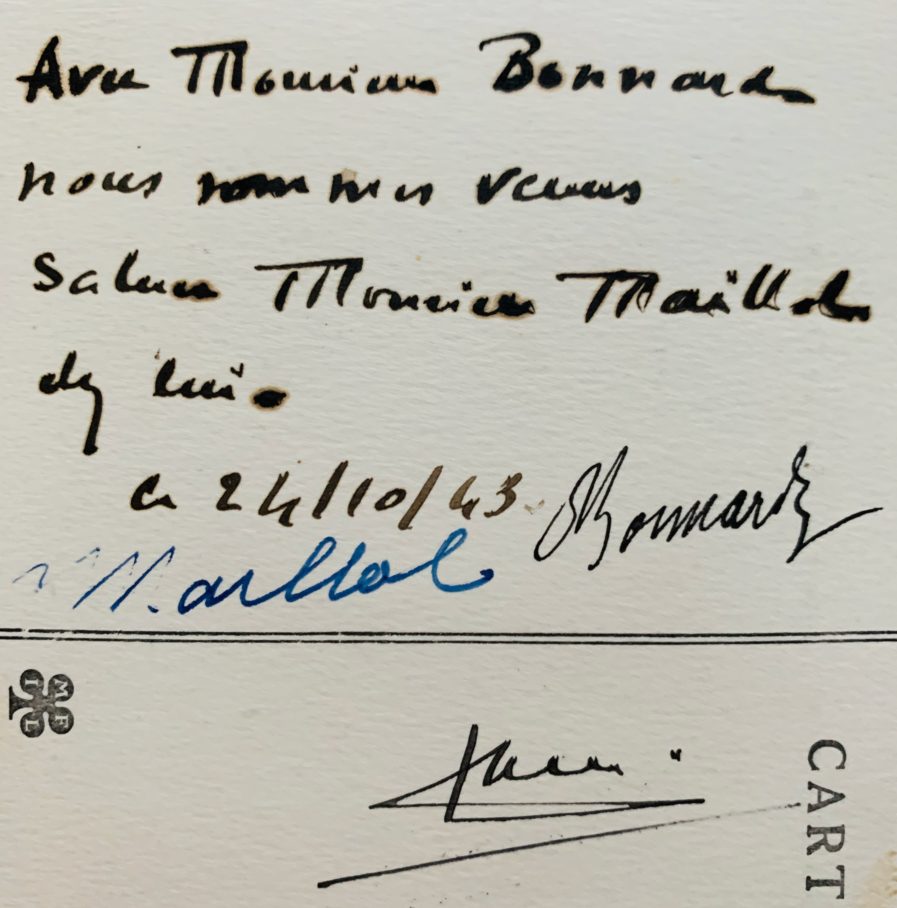 Avec Monsieur Bonnard
nous sommes venus
Saluer Monsieur Maillol
chez lui.
Ce 24/10/43.
Bonnard
Maillol
MEIL
CART